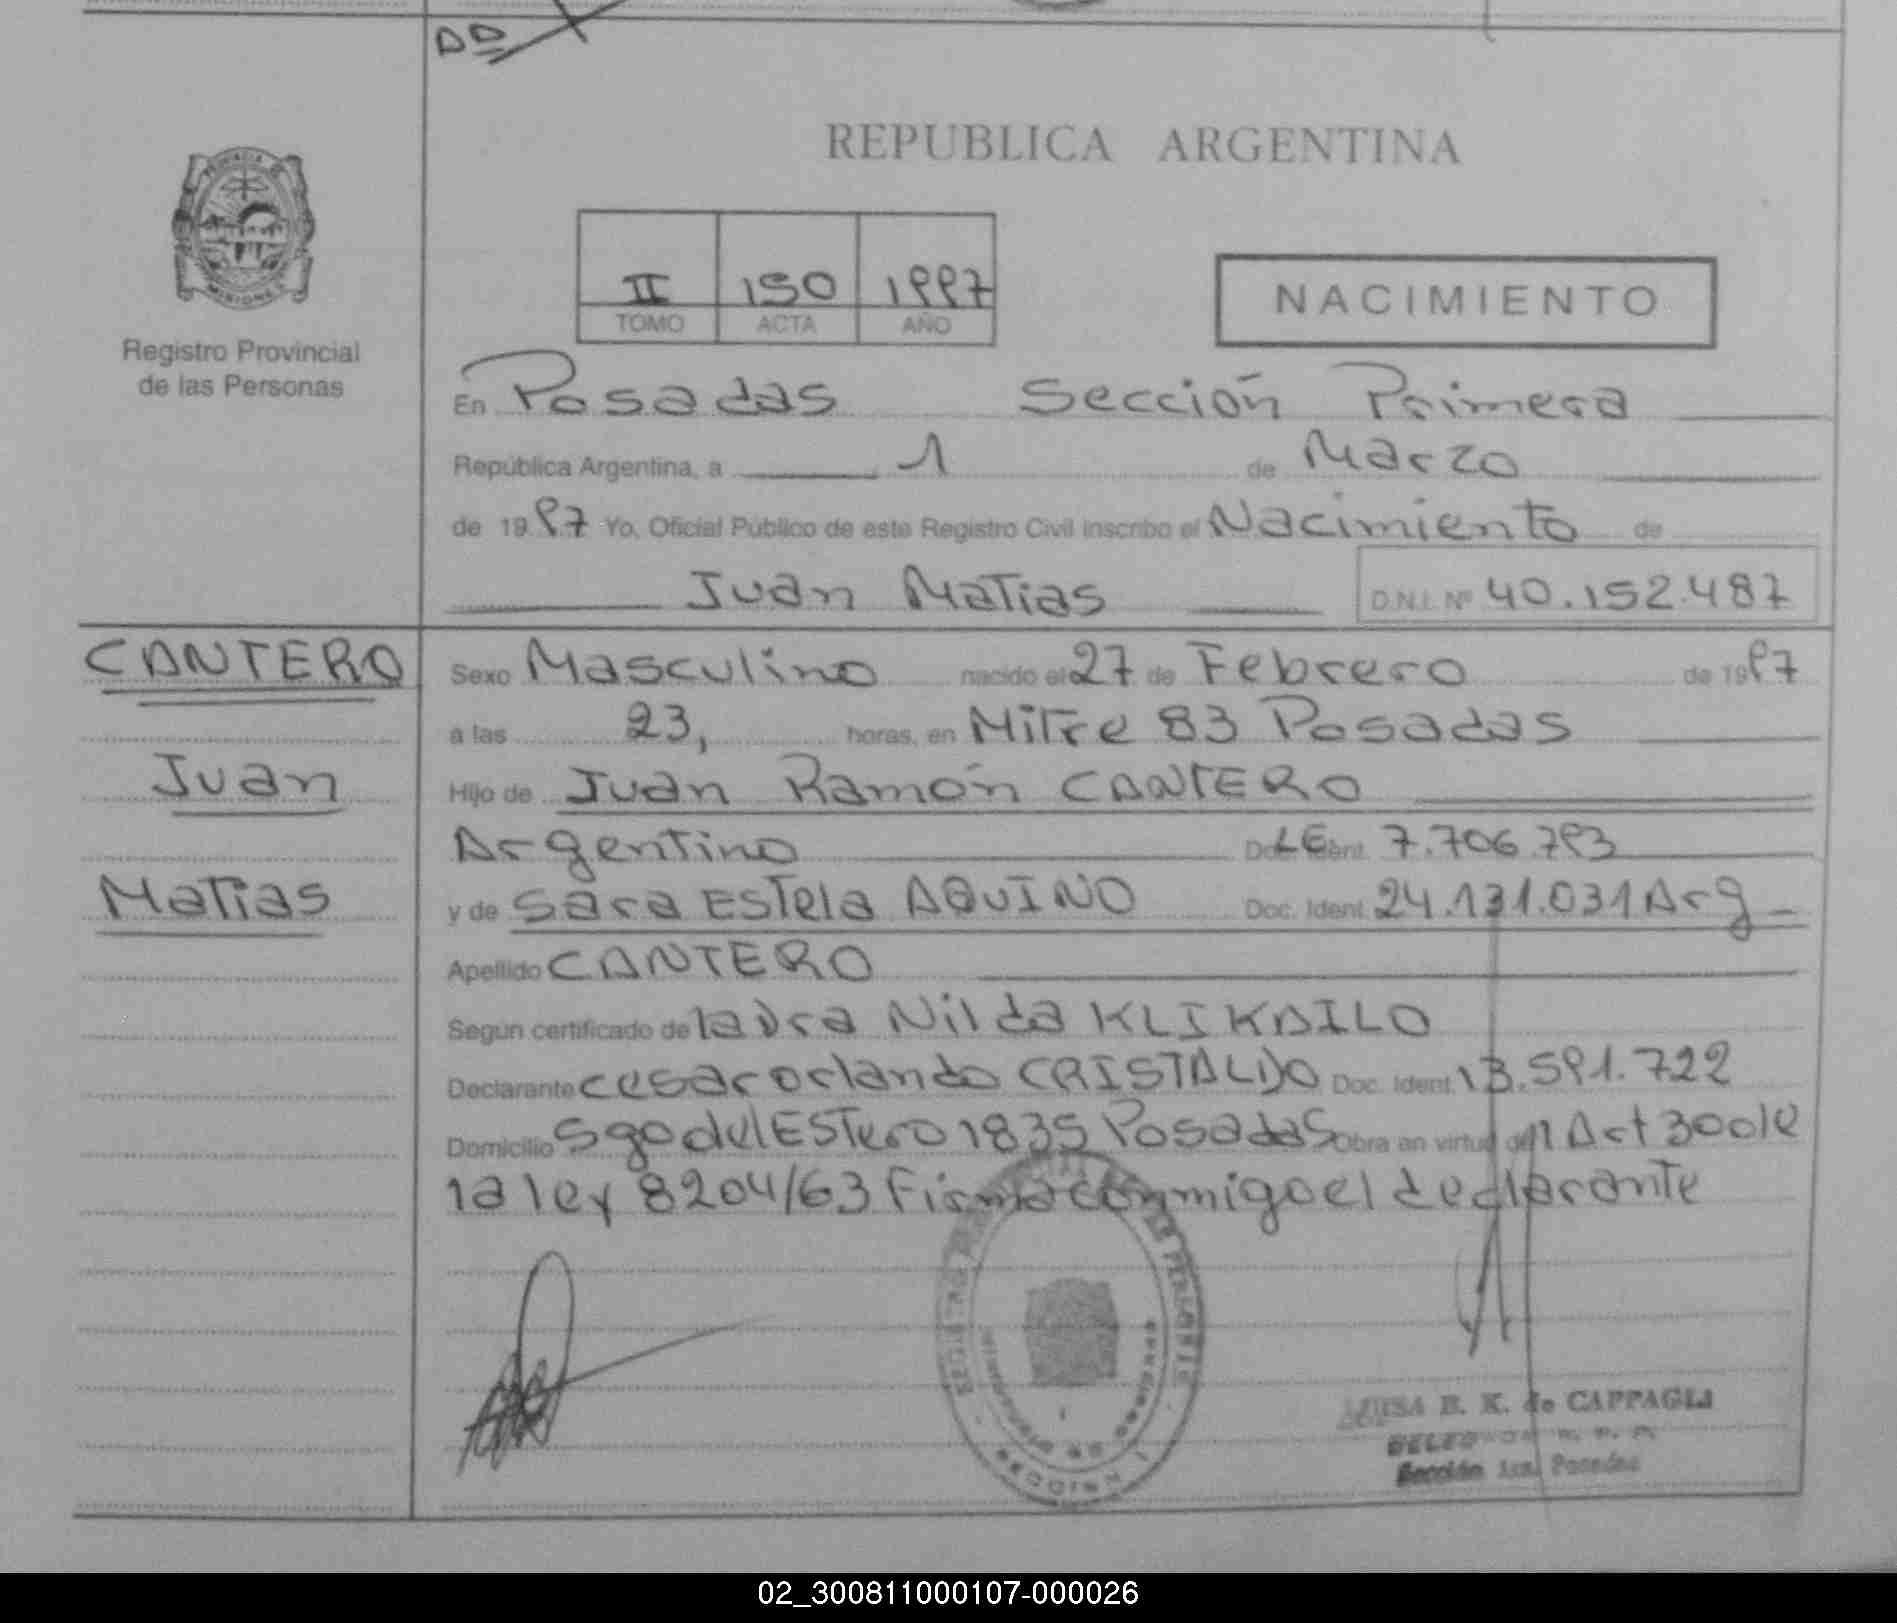 DD
REPUBLICA ARGENTINA
PROVINCIA DE
MISIONES
Registro Provincial
de las Personas
II 150 1997
TOMO ACTA AÑO
NACIMIENTO
En Posadas Sección Primera
República Argentina, a 1 de Marzo
de 1997 Yo, Oficial Público de este Registro Civil inscribo el Nacimiento de
Juan Matias D.N.I. Nº 40.152.487
CANTERO
Juan
Matias
Sexo Masculino nacido el 27 de Febrero de 1997
a las 23, horas, en Mitre 83 Posadas
Hijo de Juan Ramón CANTERO
Argentino Doc. Ident. LE 7.706.793
y de Sara Estela AQUINO Doc. Ident. 24.131.031 Arg
Apellido CANTERO
Según certificado de laura Nilda KLIKAILO
Declarante cesar orlando CRISTALDO Doc. Ident. 13.591.722
Domicilio Sgo del Estero 1835 Posadas Obra en virtud del Art 30 de
la ley 8204/63 Firma conmigo el declarante
SECCION 1
LUISA B. K. de CAPPAGLI
Sección 1ra. Posadas
02_300811000107-000026